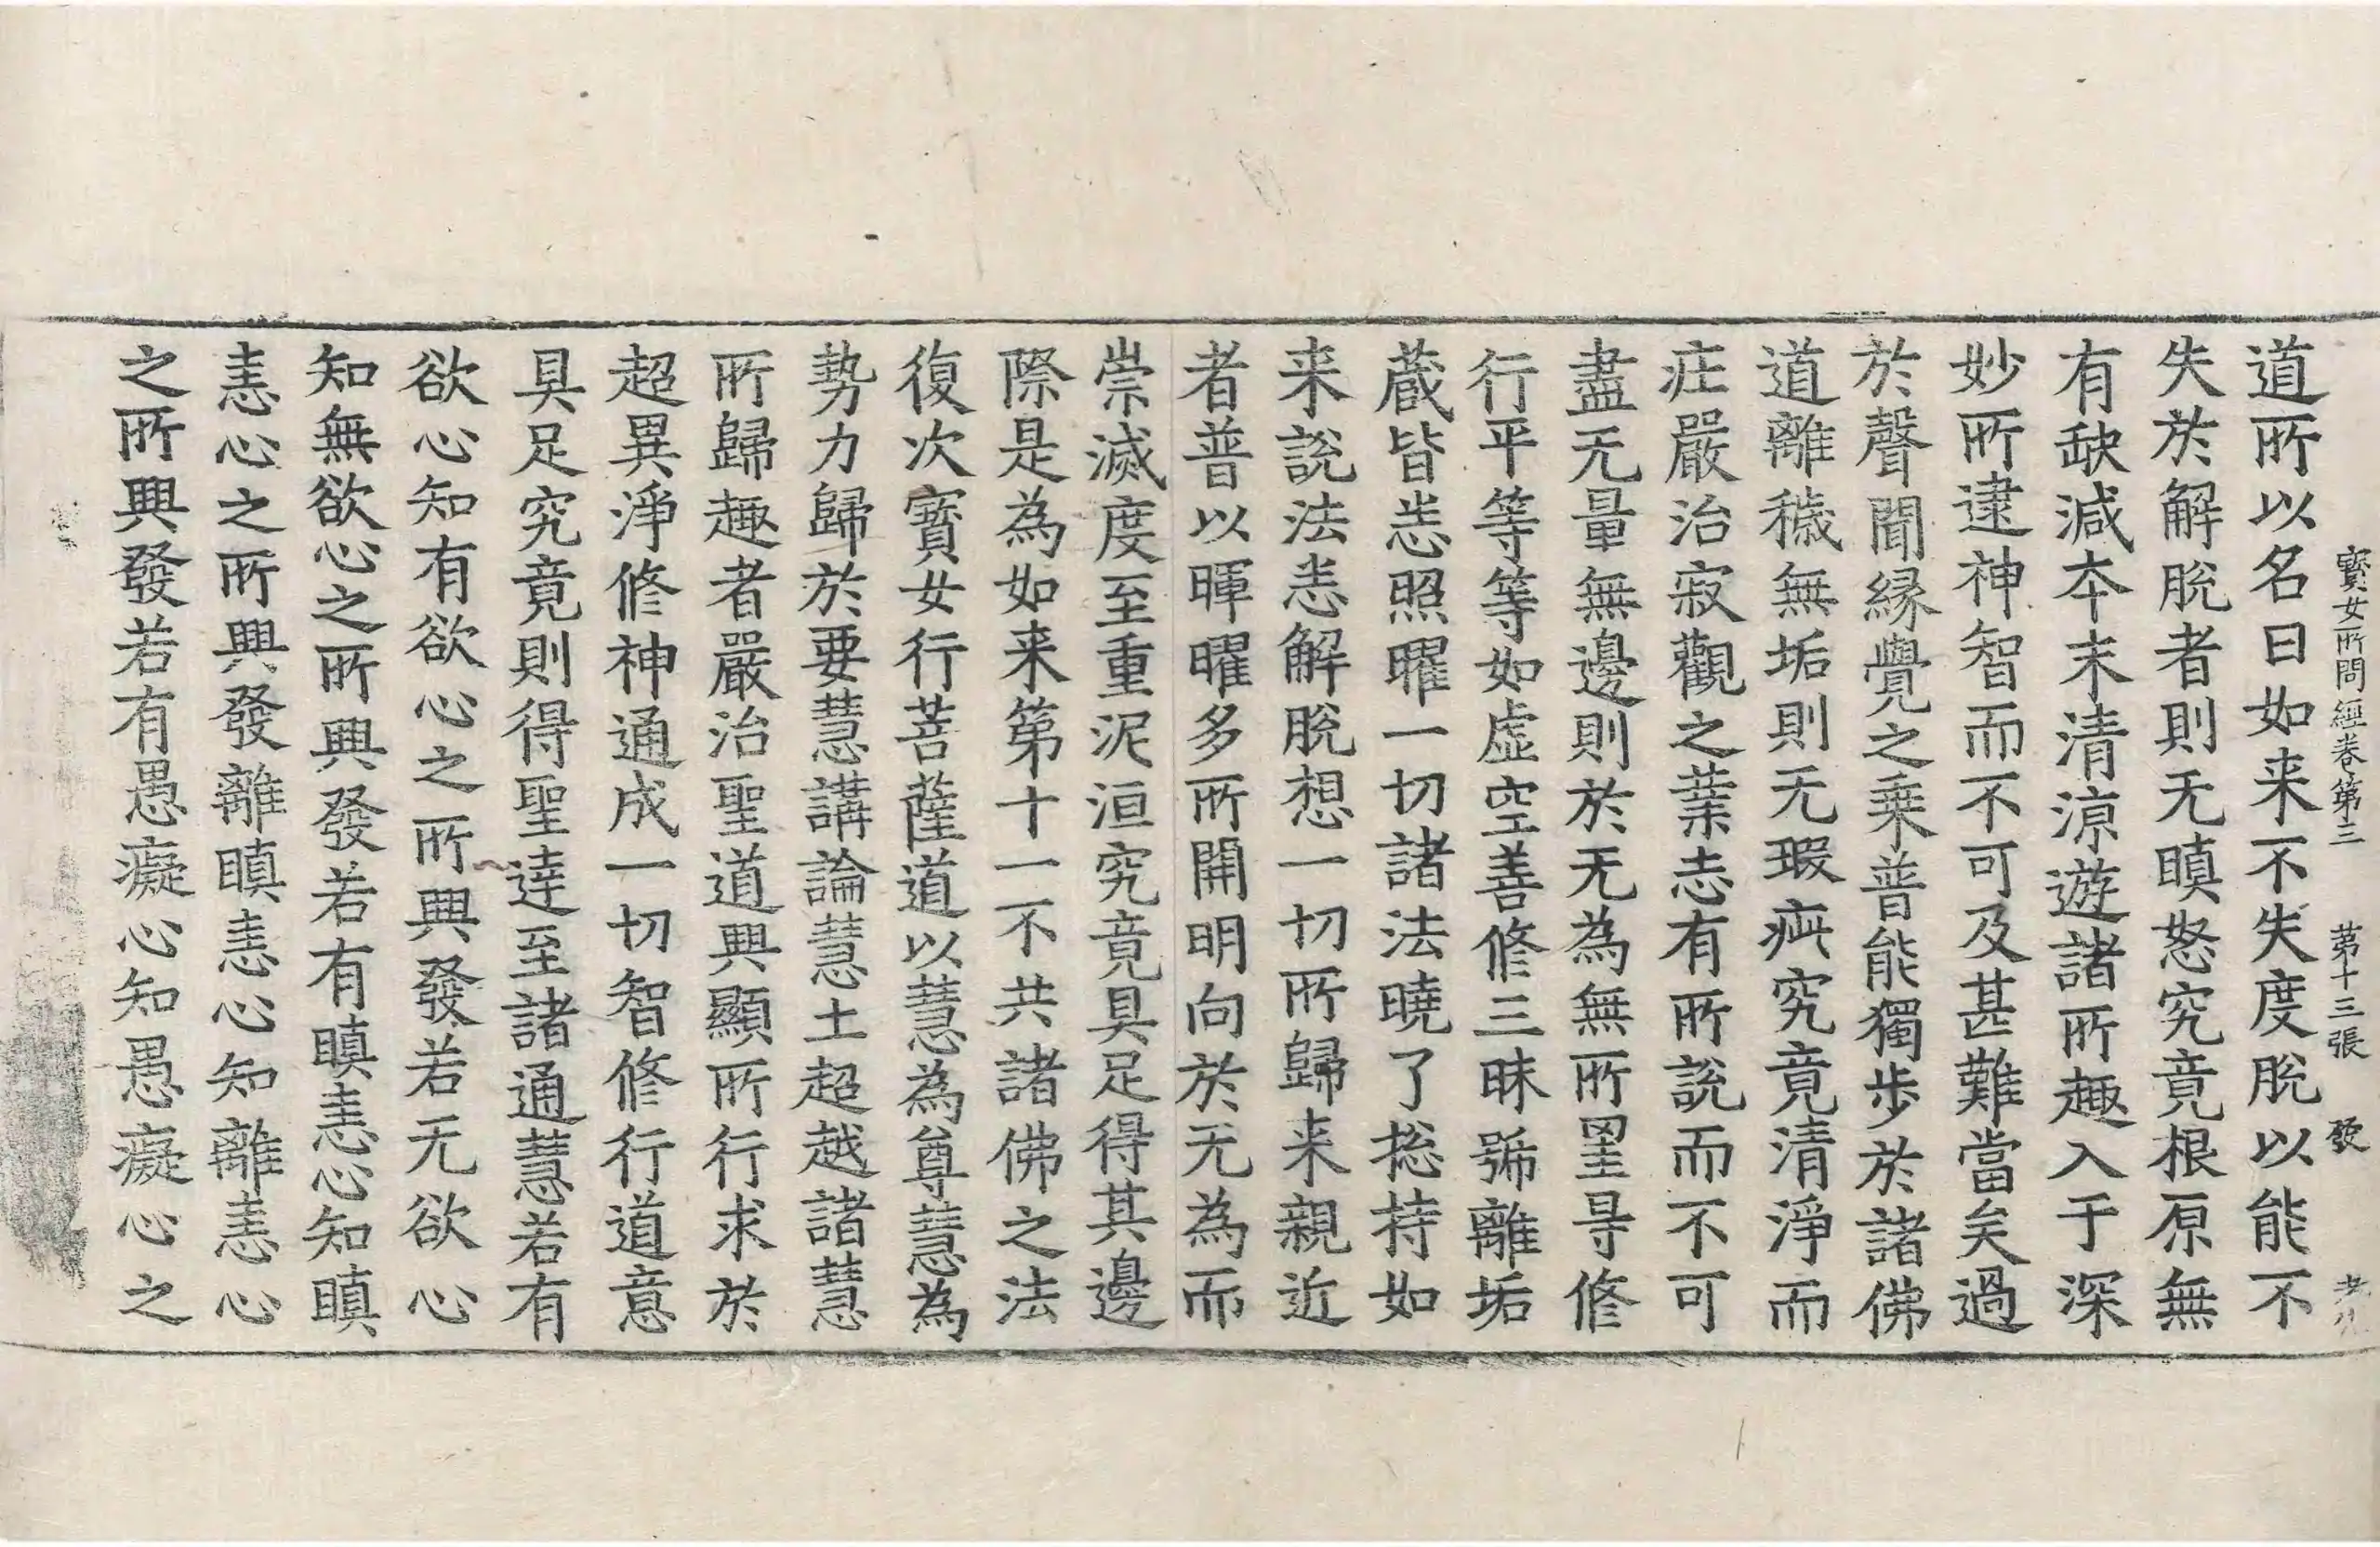 寳女所問經卷第三 第十三張 發
道所以名曰如来不失度脫以能不
失於解脫者則无瞋怒究竟根原無
有缺減夲末清涼遊諸所趣入于深
妙所逮神智而不可及甚難當矣過
於聲聞縁覺之乗普能獨步於諸佛
道離穢無垢則无瑕疵究竟清淨而
庄嚴治寂觀之業志有所說而不可
盡无量無邊則於无為無所罣㝵修
行平等等如虛空善修三昧號離垢
蔵皆悉照曜一切諸法曉了揔持如
来說法悉解脫想一切所歸来親近
者普以暉曜多所開明向於无為而
崇滅度至重泥洹究竟具足得其邊
際是為如来第十一不共諸佛之法
復次寳女行菩薩道以慧為尊慧為
勢力歸於要慧講論慧土超越諸慧
所歸趣者嚴治聖道興顯所行求於
超異淨修神通成一切智修行道意
具足究竟則得聖達至諸通慧若有
欲心知有欲心之所興發若无欲心
知無欲心之所興發若有瞋恚心知瞋
恚心之所興發離瞋恚心知離恚心
之所興發若有愚癡心知愚癡心之